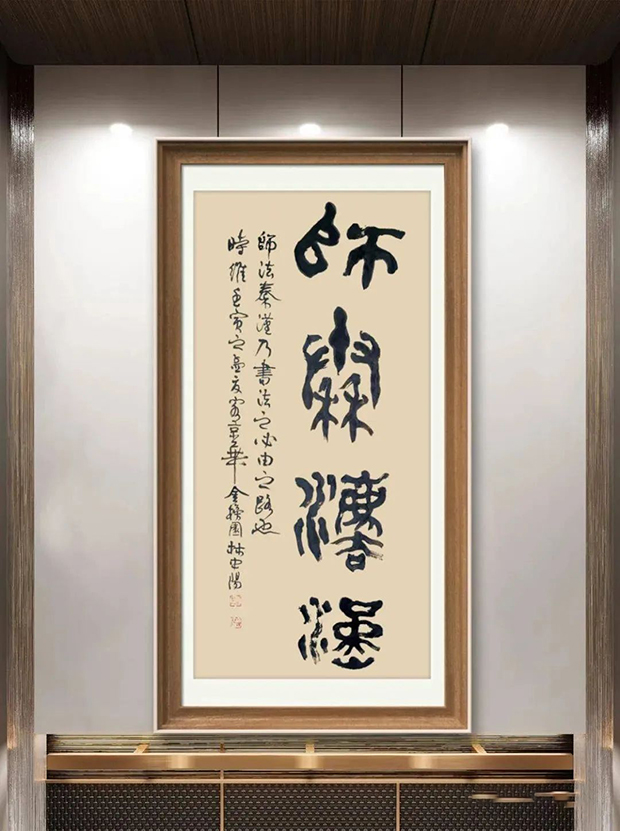 師秦灋漢
師法秦漢乃書法之必由之路也
時維壬寅之孟夏客京華金榜園林中陽